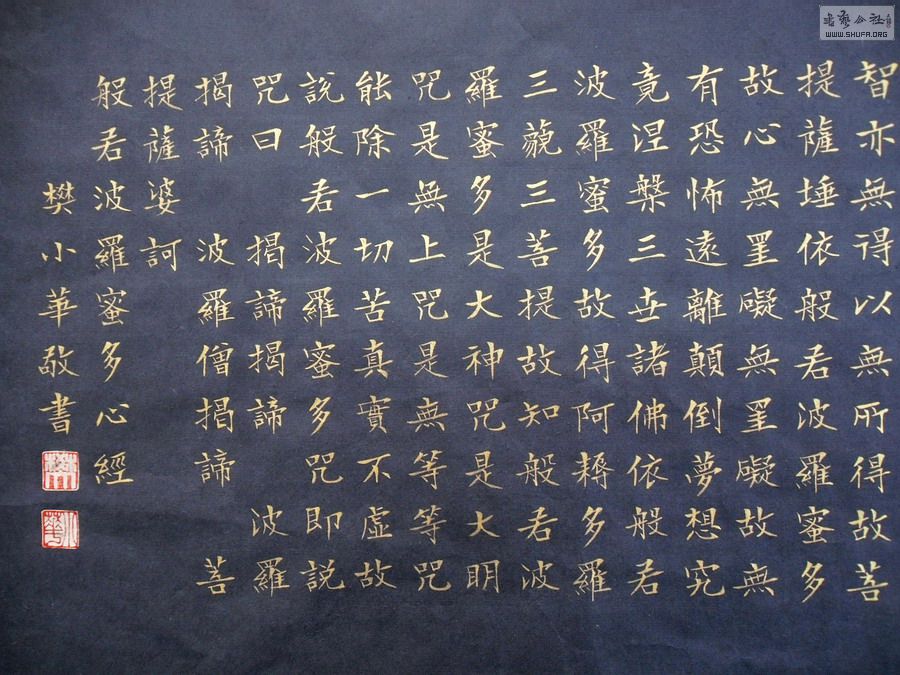 智亦無得以無所得故菩
提薩埵依般若波羅蜜多
故心無罣礙無罣礙故無
有恐怖遠離顛倒夢想究
竟涅槃三世諸佛依般若
波羅蜜多故得阿耨多羅
三藐三菩提故知般若波
羅蜜多是大神咒是大明
咒是無上咒是無等等咒
能除一切苦真實不虛故
說般若波羅蜜多咒即說
咒曰 揭諦揭諦 波羅
揭諦 波羅僧揭諦 菩
提薩婆訶
般若波羅蜜多心經
樊小華敬書
樊
小華
書藝公社
WWW.SHUFA.ORG